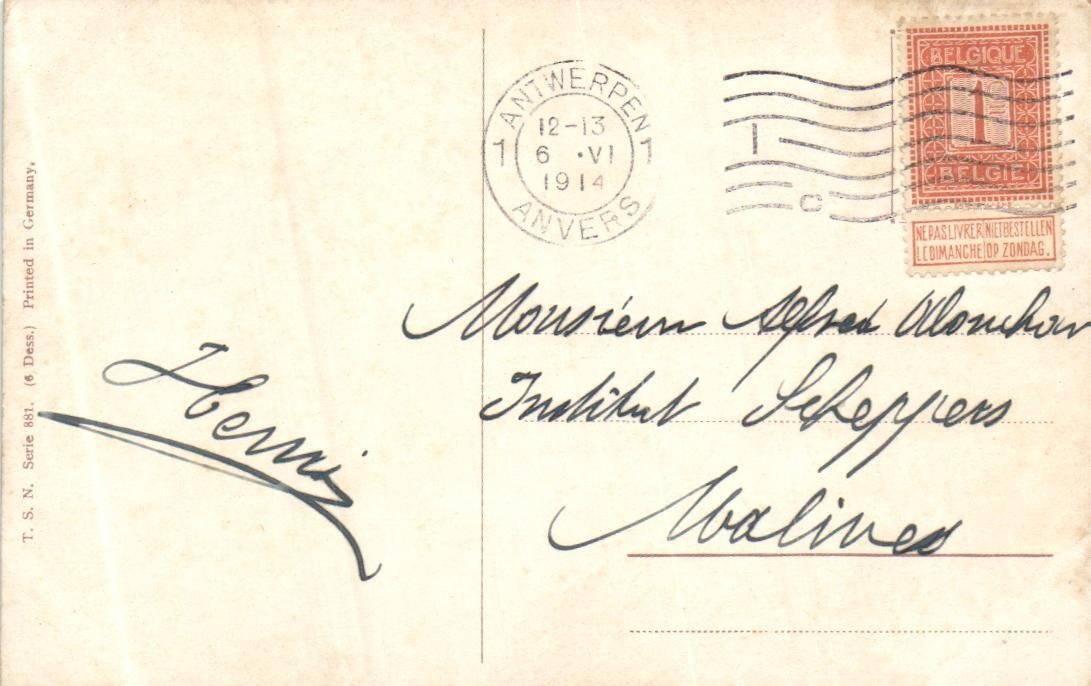 T. S. N. Serie 881. (6 Dess.) Printed in Germany.
ANTWERPEN
1 12-13 1
6 ·VI
1914
ANVERS
1
C
BELGIQUE
1
BELGIË
NE PAS LIVRER LE DIMANCHE
NIET BESTELLEN OP ZONDAG.
Monsieur Alfred
Institut Scheppers
Malines
Henri